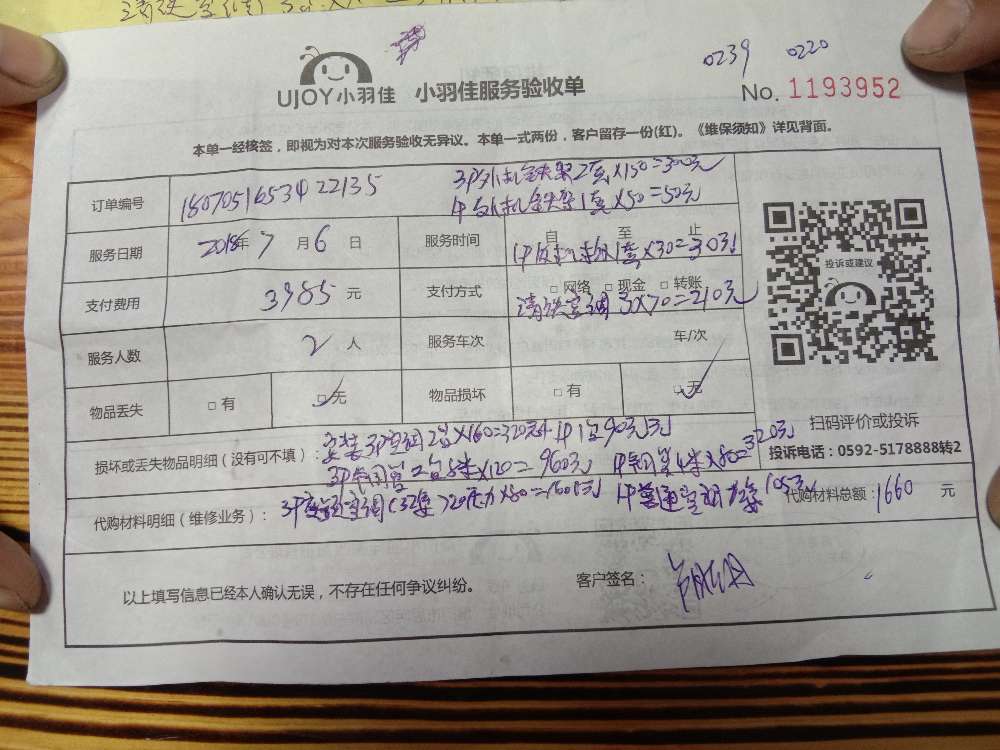 0239 0220
UJOY小羽佳 小羽佳服务验收单
No. 1193952
本单一经核签，即视为对本次服务验收无异议。本单一式两份，客户留存一份(红)。《维保须知》详见背面。
订单编号 1807051653422135 3P外机铁架2套×150=300元
1P外机铁架1套×50=50元
服务日期 2018年7月6日 服务时间 自 至 止
×30=30元
支付费用 3985元 支付方式 □网络 □现金 □转账
清洗空调3×70=210元
投诉或建议
服务人数 2人 服务车次 车/次
物品丢失 □有 □无 物品损坏 □有 □无
扫码评价或投诉
投诉电话：0592-5178888转2
损坏或丢失物品明细（没有可不填）： 安装3P空调2台×160=320元 1P1台90元
3P铜管2台8米×120=960元 1P铜管4米×80=320元
代购材料明细（维修业务）： 3P 空调 1P普通空调 105元
代购材料总额：1660元
以上填写信息已经本人确认无误，不存在任何争议纠纷。 客户签名：